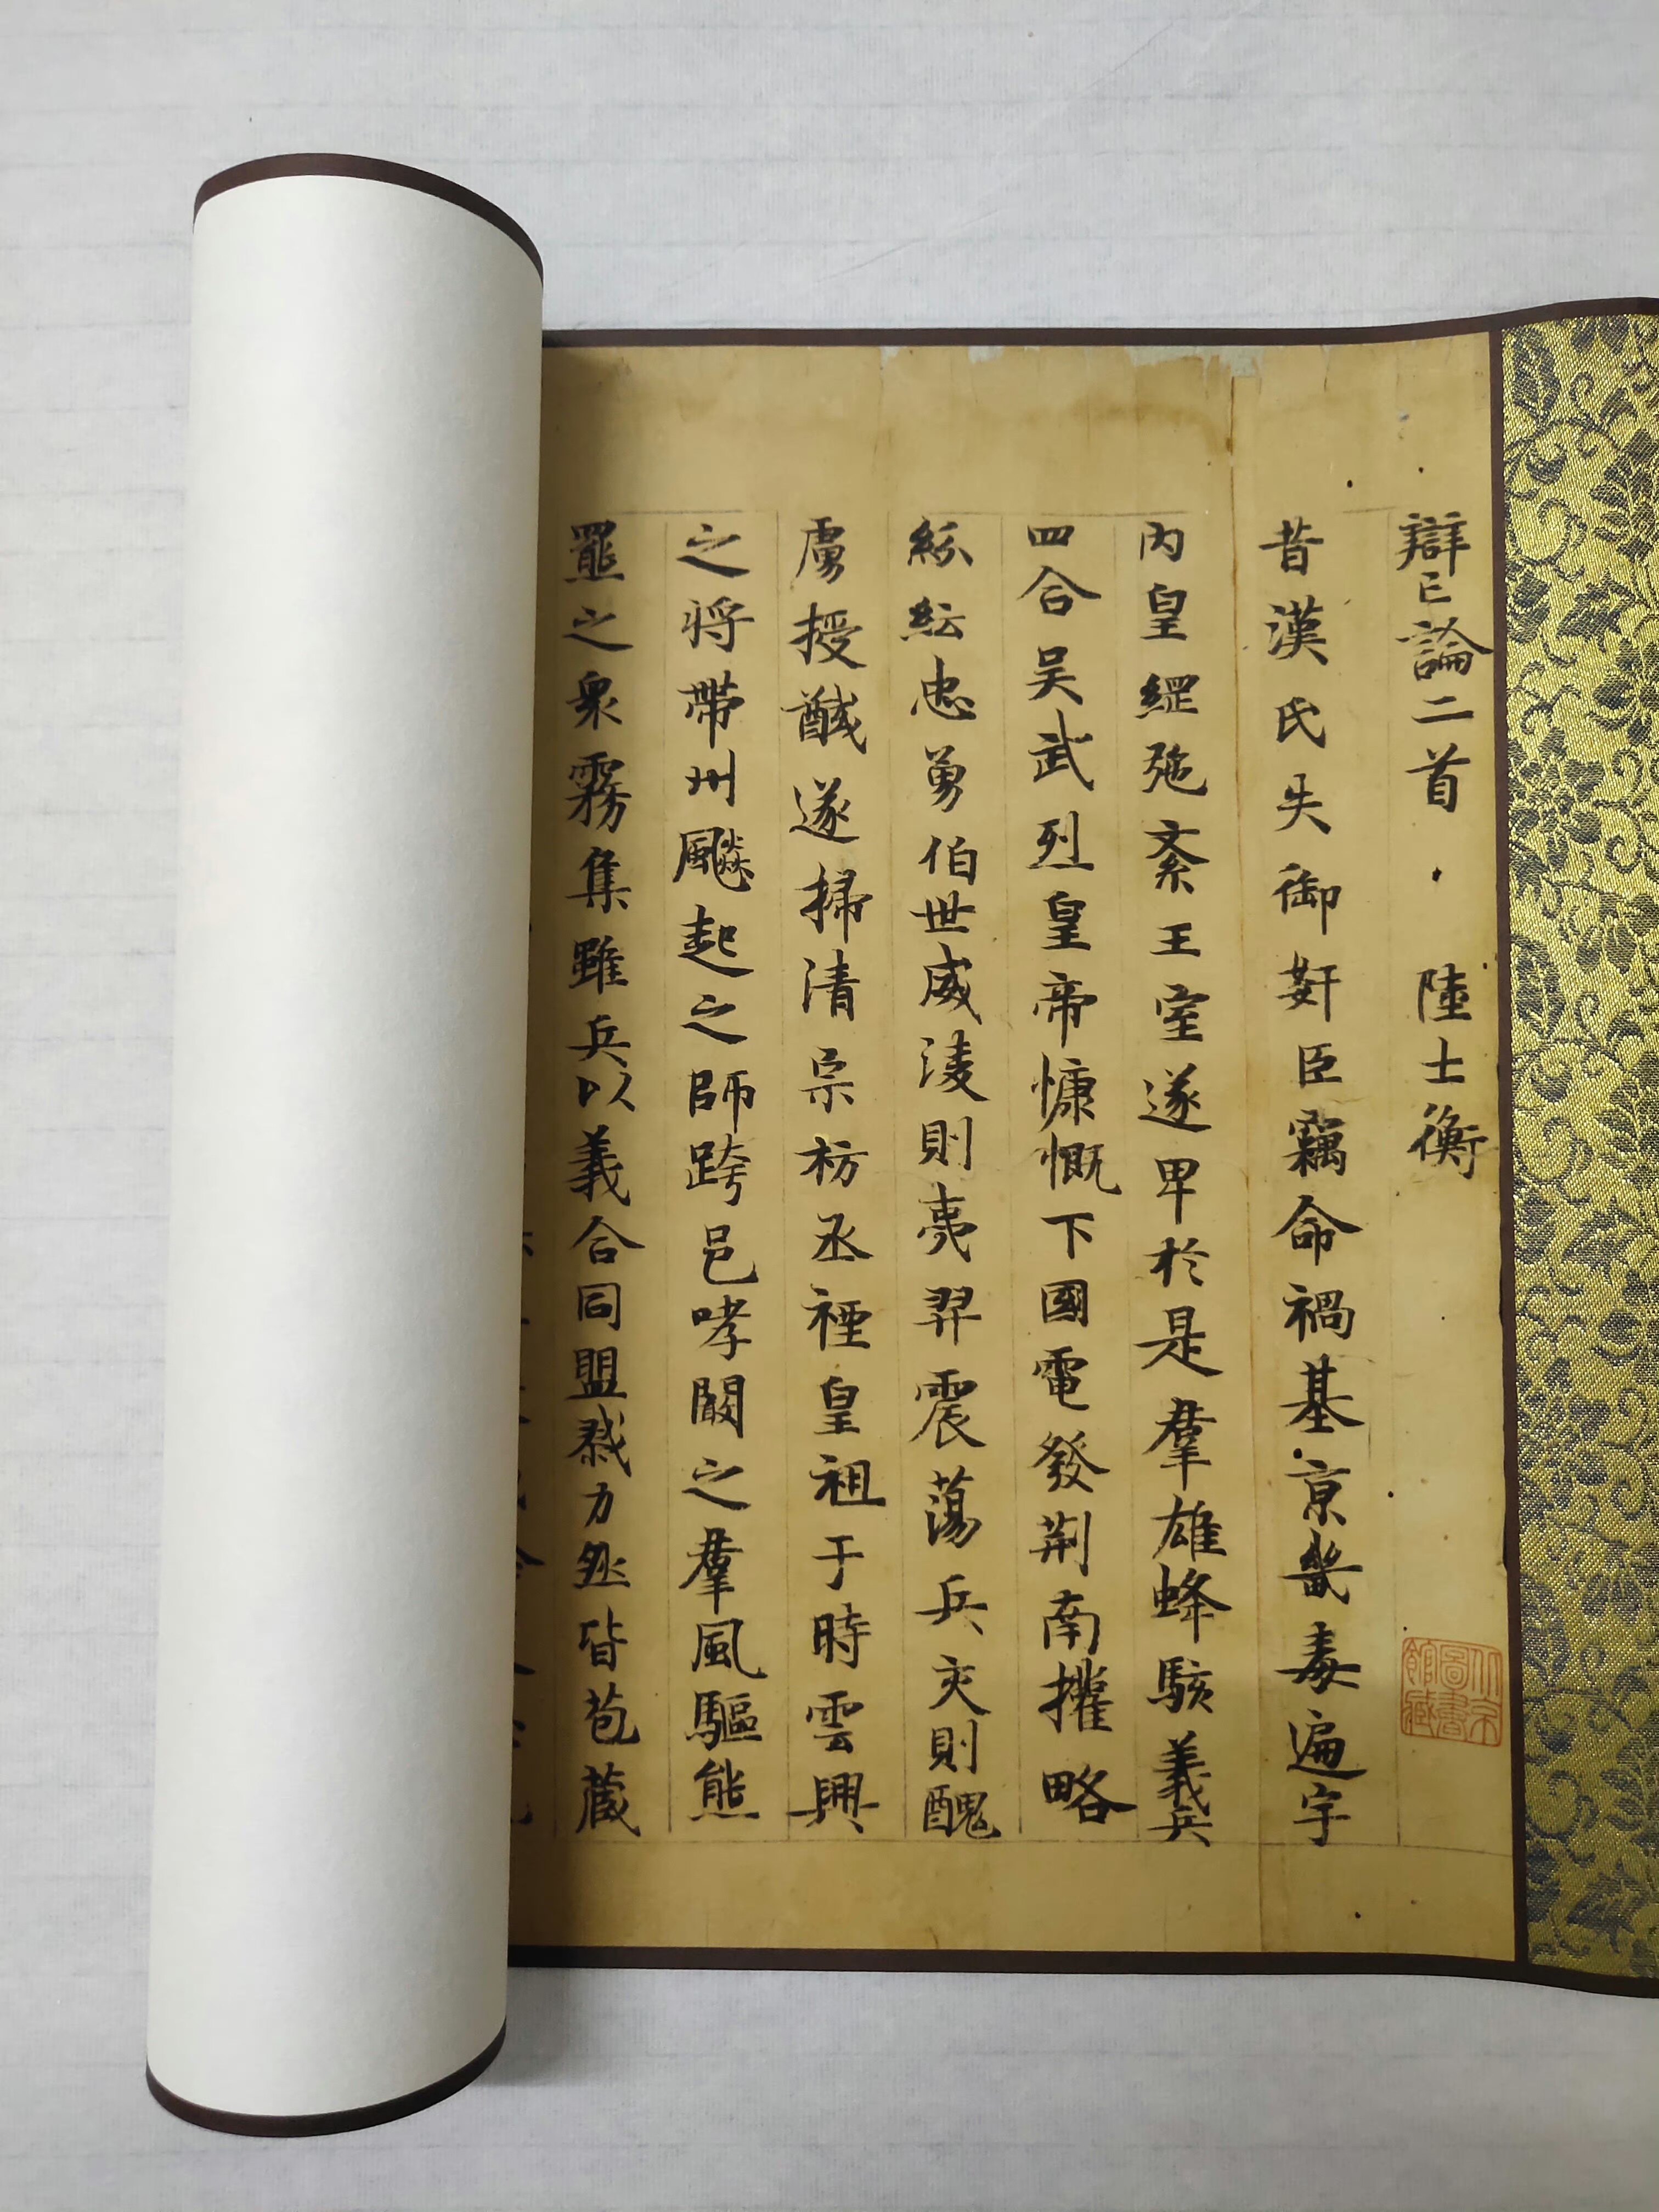 辯亡論二首 陸士衡
昔漢氏失御姧臣竊命禍基京畿毒遍宇
内皇綱弛紊王室遂卑於是羣雄蜂駭義兵
四合吴武烈皇帝慷慨下國電發荆南擁略
紛紜忠勇伯世威淩則夷羿震蕩兵交則醜
虜授馘遂掃清宗枋丞禋皇祖于時雲興
之將帶州飈起之師跨邑哮闞之羣風驅熊
羆之衆霧集雖兵以義合同盟勠力然皆苞藏
北京圖書館藏